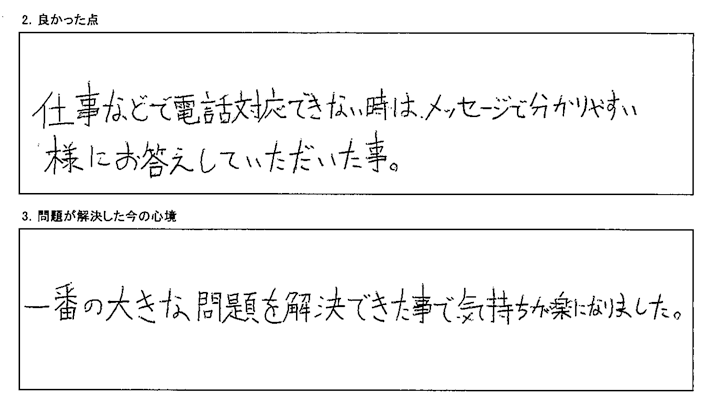 2. 良かった点
仕事などで電話対応できない時は、メッセージで分かりやすい
様にお答えしていただいた事。
3. 問題が解決した今の心境
一番の大きな問題を解決できた事で気持ちが楽になりました。